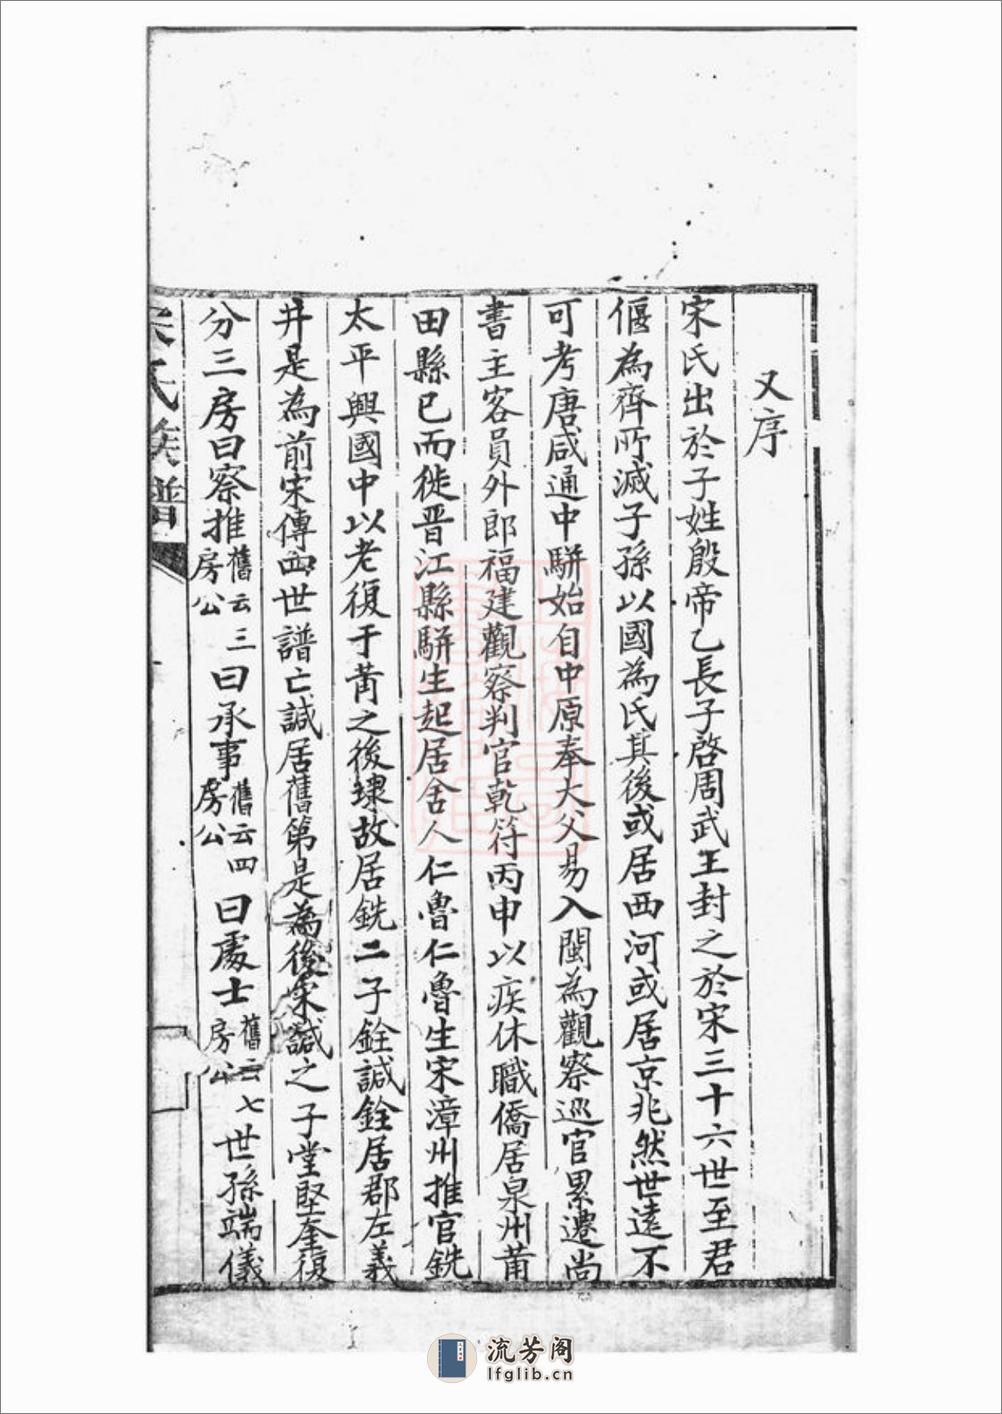 又序
宋氏出於子姓殷帝乙長子啓周武王封之於宋三十六世至君
偃為齊所滅子孫以國為氏其後或居西河或居京兆然世遠不
可考唐咸通中駢始自中原奉大父易入閩為觀察巡官累遷尚
書主客員外郎福建觀察判官乾符丙申以疾休職僑居泉州莆
田縣已而徙晉江縣駢生起居舍人仁魯仁魯生宋漳州推官銑
太平興國中以老復于莆之後埭故居銑二子銓諴銓居郡左義
井是為前宋傳四世譜亡諴居舊第是為後宋諴之子堂堅奎復
分三房曰察推舊云三房公曰承事舊云四房公曰處士舊云七房公世孫端儀
宋氏族譜
流芳阁
lfglib.cn